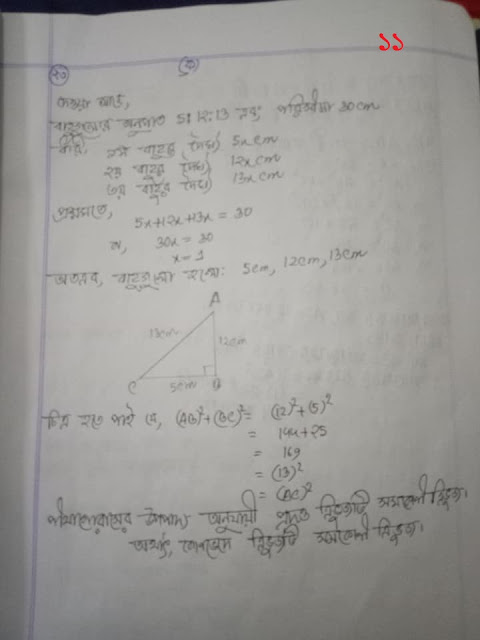 ১১
১০ (ক)
দেওয়া আছে,
বাহুগুলোর অনুপাত 5:12:13 এবং পরিসীমা 30cm
ধরি, ১ম বাহুর দৈর্ঘ্য 5x cm
২য় বাহুর দৈর্ঘ্য 12x cm
৩য় বাহুর দৈর্ঘ্য 13x cm
প্রশ্নমতে,
5x+12x+13x = 30
বা, 30x = 30
x = 1
অতএব, বাহুগুলো হলো: 5cm, 12cm, 13cm
A
13cm 12cm
C 5cm B
চিত্র হতে পাই যে, (AB)²+(BC)² = (12)²+(5)²
= 144+25
= 169
= (13)²
= (AC)²
পীথাগোরাসের উপপাদ্য অনুযায়ী প্রদত্ত ত্রিভুজটি সমকোণী ত্রিভুজ।
অর্থাৎ, ত্রিভুজটি সমকোণী ত্রিভুজ।